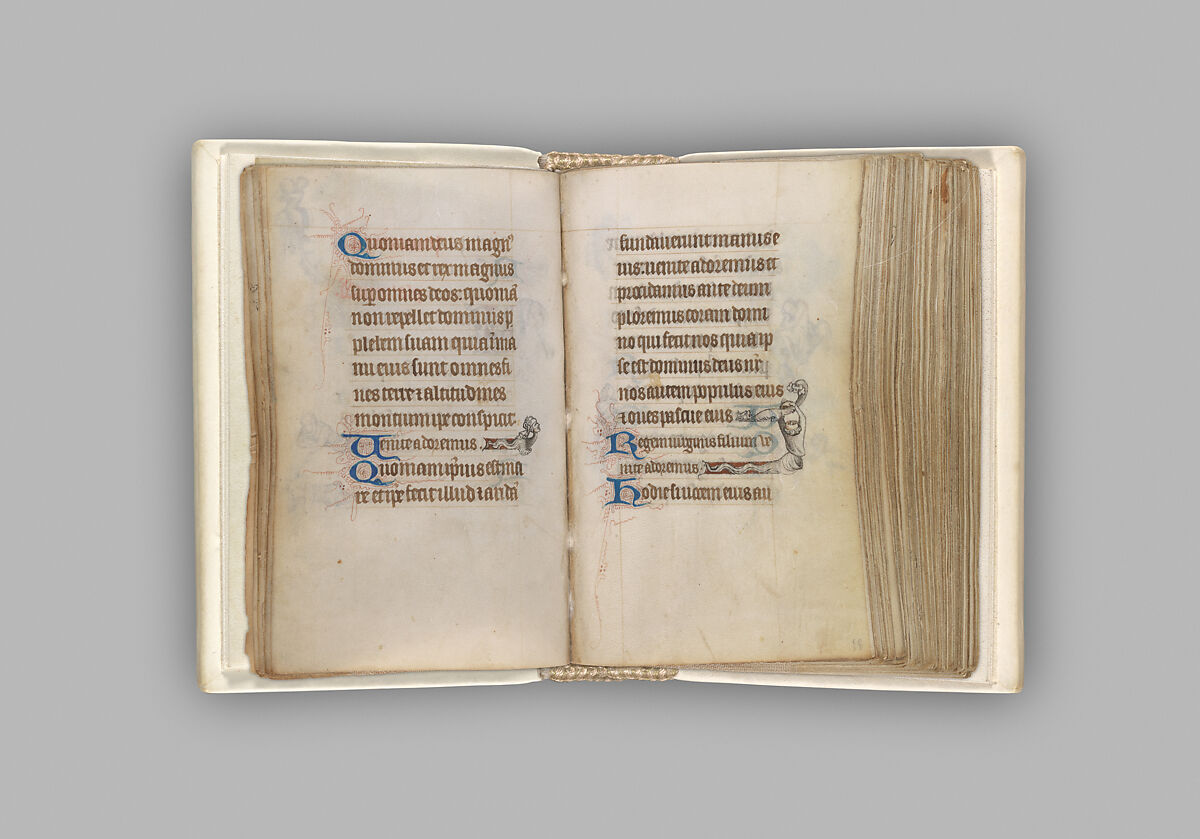 Quoniam deus magnꝰ
dominus et rex magnus
suꝑ omnes deos: quoniā
non repellet dominus p
plebem suam quia ī ma
nu eius sunt omnes fi
nes terre ⁊ altitudines
montium ip̄e conspicit.
Uenite adoremus.
Quoniam ip̄ius est ma
re et ip̄e fecit illud ⁊ aridā
fundauerunt manus e
ius: uenite adoremus et
procidamus ante deum
ploremus coram domi
no qui fecit nos quia ip
se est dominus deus nr̄
nos autem populus eius
⁊ oues pascue eius
Regem uirginis filium Ve
nite adoremus
Hodie si uocem eius au